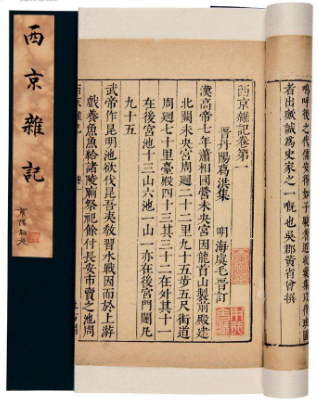 西京雜記
西京雜記卷第一
晉丹陽葛洪集 明海虞毛晉訂
漢高帝七年蕭相國營未央宮因龍首山製前殿建
北闕未央宮周迴二十二里九十五步五尺街道
周迴七十里臺殿四十三其三十二在外其十一
在後宮池十三山六池一山一亦在後宮門闥凡
九十五
武帝作昆明池欲伐昆吾夷教習水戰因而於上游
戲養魚魚給諸陵廟祭祀餘付長安市賣之池周
西京雜記
者出歟誠為史家之一慨也吳郡黃省曾撰